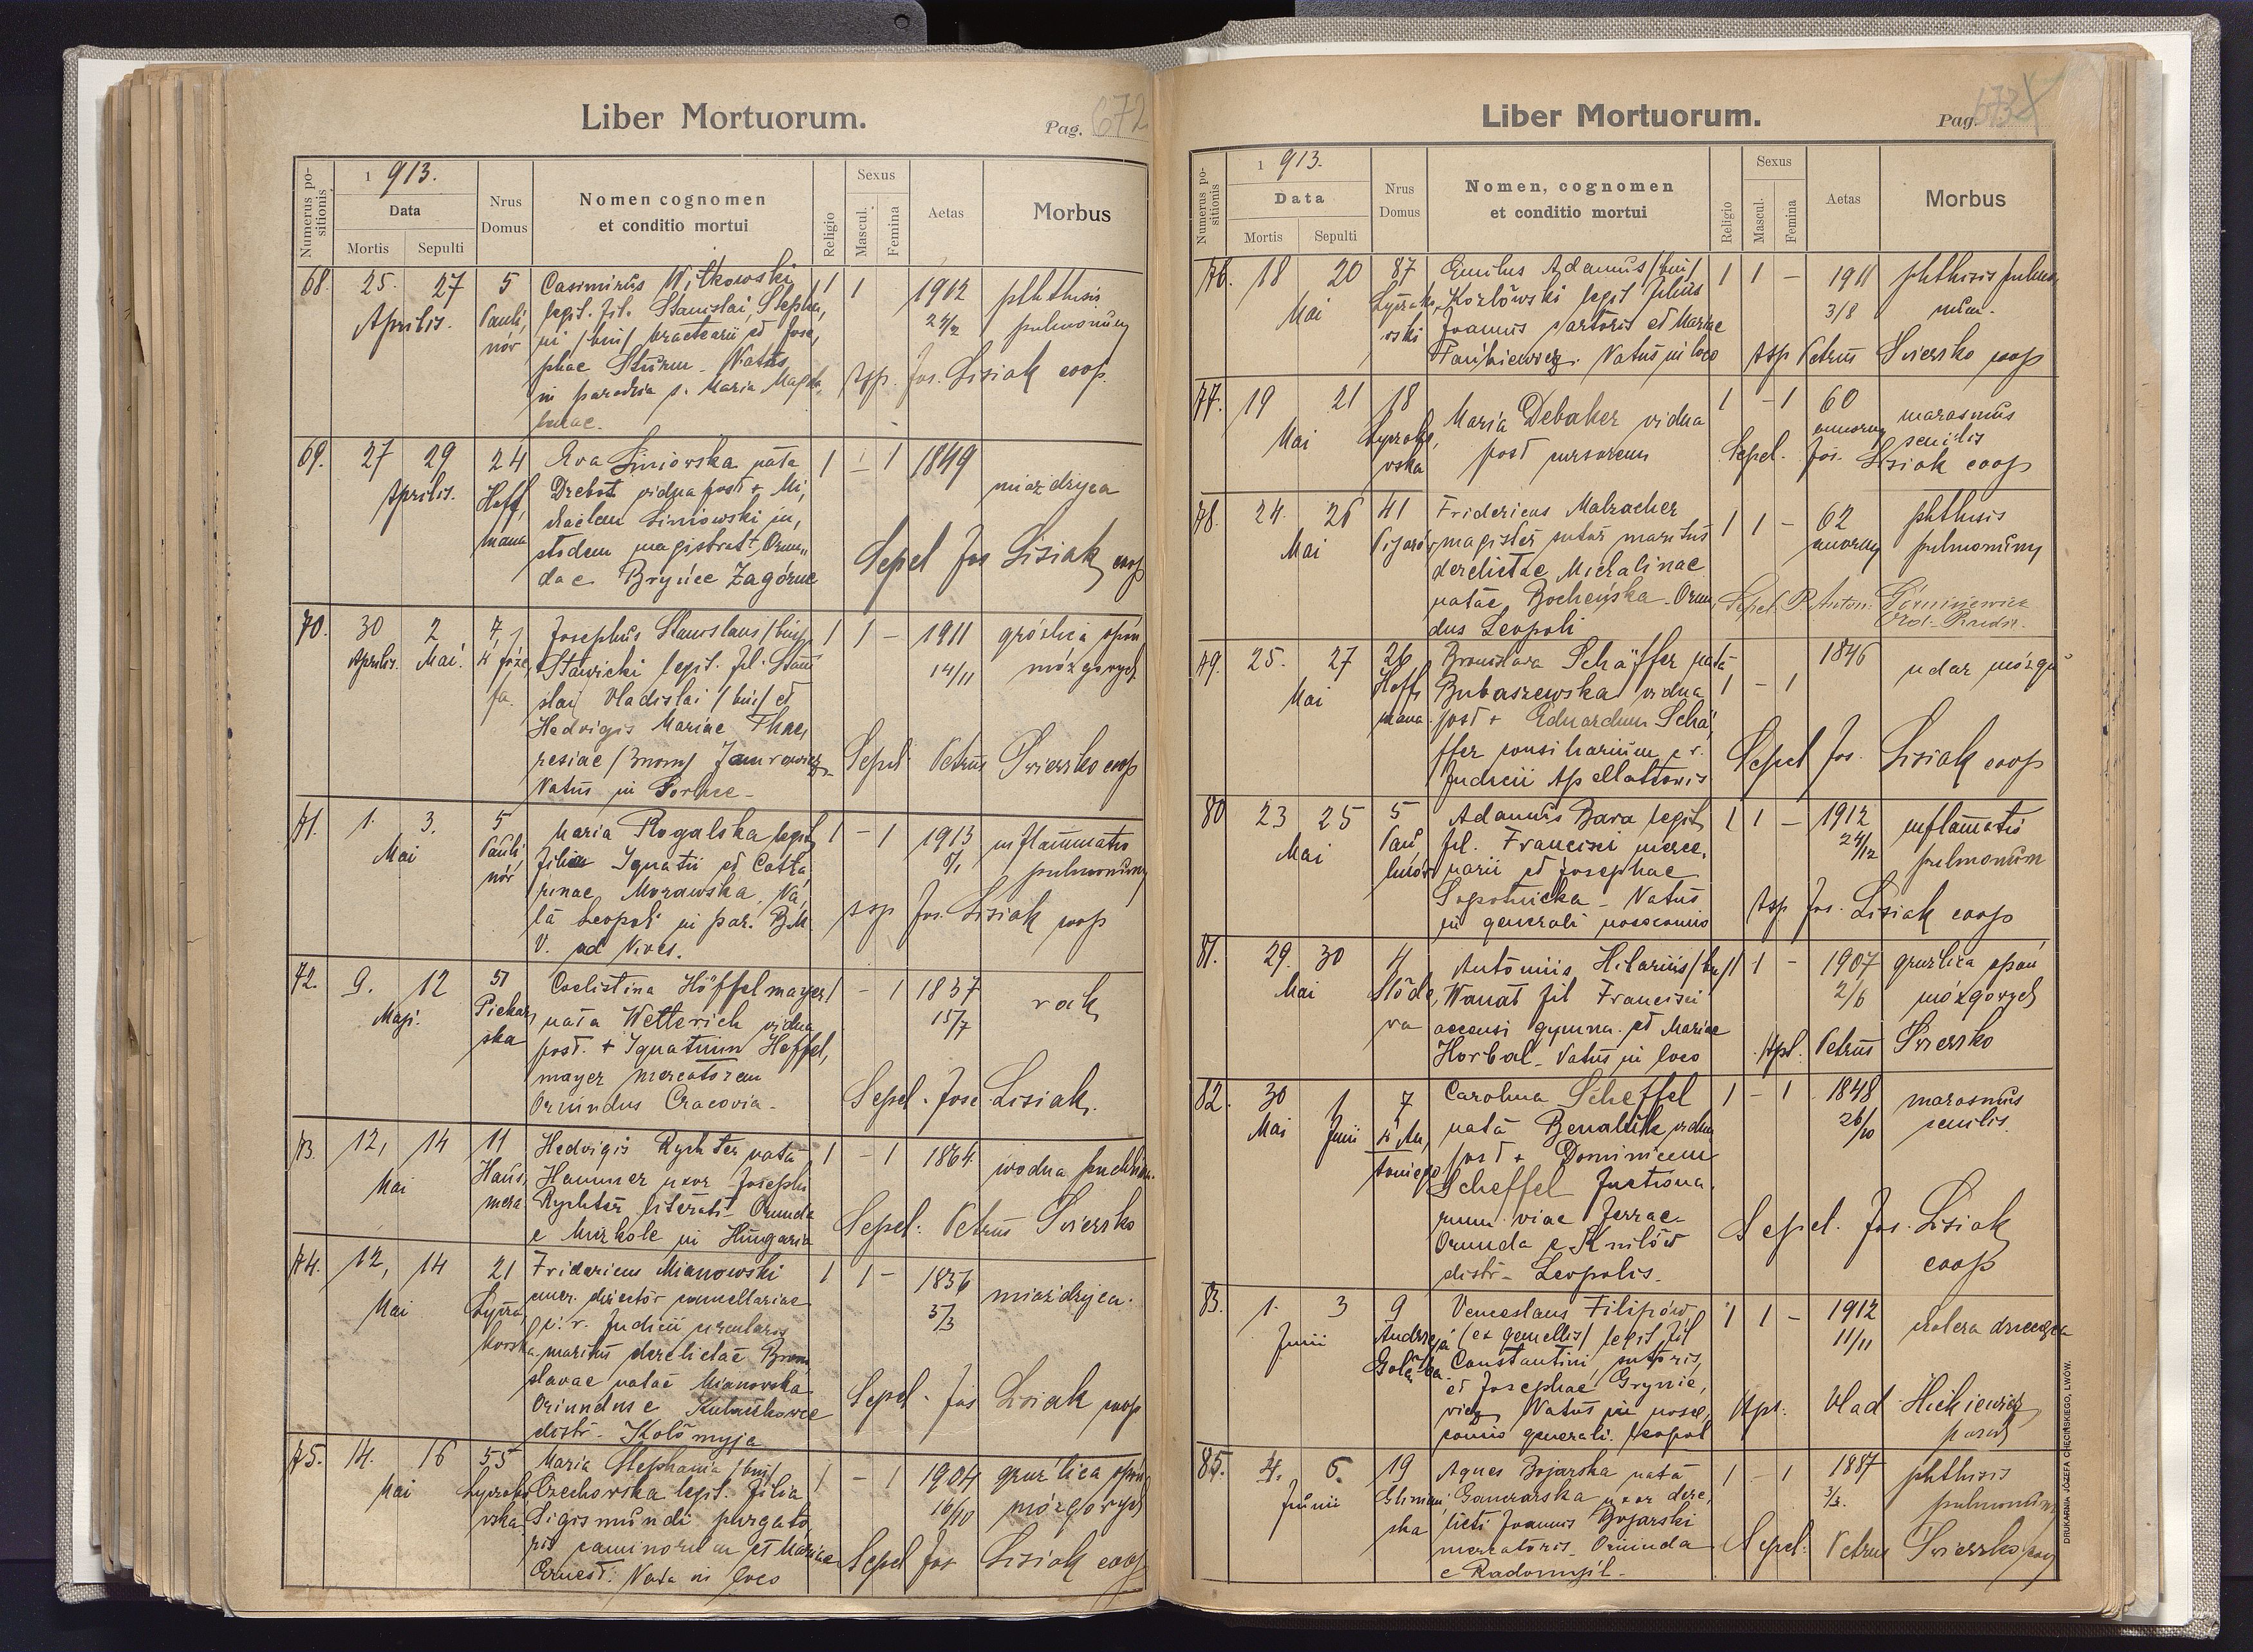 Liber Mortuorum.
Pag. 672
Numerus positionis
1913.
Data
Mortis Sepulti
Nrus Domus
Nomen cognomen
et conditio mortui
Religio
Sexus
Mascul.
Femina
Aetas
Morbus
68. 25. 27 Aprilis.
5
Casimirus Witkowski
legit. fil. Stanislai, Stepha,
ni /bin/ bractearii et Jose,
phae Sturm. Natus
in parochia s. Maria Magda,
lenae.
1 1
1912
phthisis
pulmonum
Asp. Jos. Lisiak coop.
69. 27 29 Aprilis.
24
Hoff,
mana
Eva Liniowska nata
Drebot vidua post + Mi,
chaelem Liniowski in,
studem magistratt, Oriun,
da e Brynce Zagórne
1 - 1
1849
miażdżyca
Sepel Jos Lisiak coop
70. 30 2
Aprilis. Mai.
7,
Ś. Józe,
fa.
Josephus Stanislaus /bin/
Stawicki legit. fil. Stani
slai Vladislai /bin/ et
Hedvigis Mariae There,
resiae /3nom/
Natus in
1 1 -
1911
14/11
gruźlica opon
mózgowych
Sepel Petrus Swiersko coop
71. 1. 3. Mai
5
Pauli,
nów
Maria Rogalska legit,
filia Ignatii et Catha,
rinae Morawska. Na,
ta Leopoli in par. B.M.
V. ad Nives.
1 - 1
1913
inflammatio
pulmonum
Asp Jos. Lisiak coop
72. 9. 12 Maji.
51
Piekar,
ska
Coelistina Höffelmayer
nata Wetterich vidua
post. + Ignatium Heffel,
mayer mercatorem
Oriundus Cracovia -
1 - 1
1837
15/7
rak
Sepel. Jose Lisiak.
73. 12, 14 Mai
11
Haus,
mera
Hedvigis Rychter nata
Hammer uxor Josephi
Rychter literati - Oriunda
e Mizkole in Hungaria
1 - 1
1864
wodna puchlina.
Sepel: Petrus Swiersko
74. 12, 14 Mai
21
Łycza,
kowska
Fridericus Mianowski
emer. director cancellariae
c. r. Judicii
maritus derelictae Broni
slavae natae Mianowska
Oriundus e Kułaczkowce
distr - Kołomyja
1 1 -
1836
5/3
miażdżyca.
Sepel. Jos Lisiak coop
75. 14. 16 Mai
55
Łyczako,
wska
Maria Stephania /bin/
Orzechowska legit. filia
Sigismundi purgato,
ris caminorum et Mariae
Ernest. Nata in loco
1 - 1
1904
16/10
gruźlica opon
mózgowych
Sepel Jos Lisiak coop
Liber Mortuorum.
Pag. 673
Numerus positionis
1913.
Data
Mortis Sepulti
Nrus Domus
Nomen, cognomen
et conditio mortui
Religio
Sexus
Mascul.
Femina
Aetas
Morbus
76. 18 20 Mai
87
Łyczako,
wski
Emilus Adamus /bin/
Kozłowski legit filius
Joannis sartoris et Mariae
Natus in loco
1 1 -
1911
3/8
phthisis pulmo
num.
Asp Petrus Swiersko coop
77. 19 21 Mai
18
Łyczako,
wska
Maria Debaker vidua
post cursorem
1 - 1
60
annorum
marasmus
senilis
Sepel. Jos. Lisiak coop
78. 24. 26 Mai
41
Pijarów
Fridericus Malracher
magister sutor maritus
derelictae Michalinae
natae Bocheńska - Oriun,
dus Leopoli
1 1 -
62
annorum
phthisis
pulmonum
Sepel. P. Anton.
79. 25. 27 Mai
26
Hoff,
mana
Bronislava Schäffer nata
Bubaszewska vidua
post + Eduardum Schä,
ffer consiliarium c. r.
Judicii Apellationis
1 - 1
1846
udar mózgu
Sepel Jos. Lisiak coop
80 23 25 Mai
5
Pau,
linów
Adamus Bara legit,
fil. Francisci merce,
narii et Josephae
Sopotnicka - Natus
in generali nosocomio
1 1 -
1912
24/12
inflamatio
pulmonum
Asp Jos. Lisiak coop
81. 29. 30 Mai
4
Antonius Hilarius /bin/
Wanat fil Francisci
accensi gymna. et Mariae
Horbal - Natus in loco
1 1 -
1907
2/6
gruźlica opon
mózgowych
Apt. Petrus Swiersko
82. 30 1
Mai Junii
7
Ś. An,
toniego
Carolina Scheffel
nata Benaltik vidua
post + Dominicum
Scheffel functiona,
rium viae ferrae
Oriunda e
distr - Leopolis.
1 - 1
1848
26/10
marasmus
senilis.
Sepel. Jos. Lisiak
coop
83. 1. 3 Junii
9
Andrzeja
Gołąba
Venceslaus Filipów
(ex gemellis) legit fil
Constantini, sutoris,
et Josephae Grynie,
wicz Natus in noso,
comio generali. Leopol
1 1 -
1912
11/11
Apt: Vlad
85. 4. 6. Junii
19
Glinian
ska
Agnes Bojarska nata
Gancarska uxor dere,
licti Joannis Bojarski
mercatoris - Oriunda
e Radomyśl -
1 - 1
1887
3/3.
phthisis
pulmonum
Sepel: Petrus Swiersko coop
DRUKARNIA JÓZEFA CHĘCIŃSKIEGO, LWÓW.